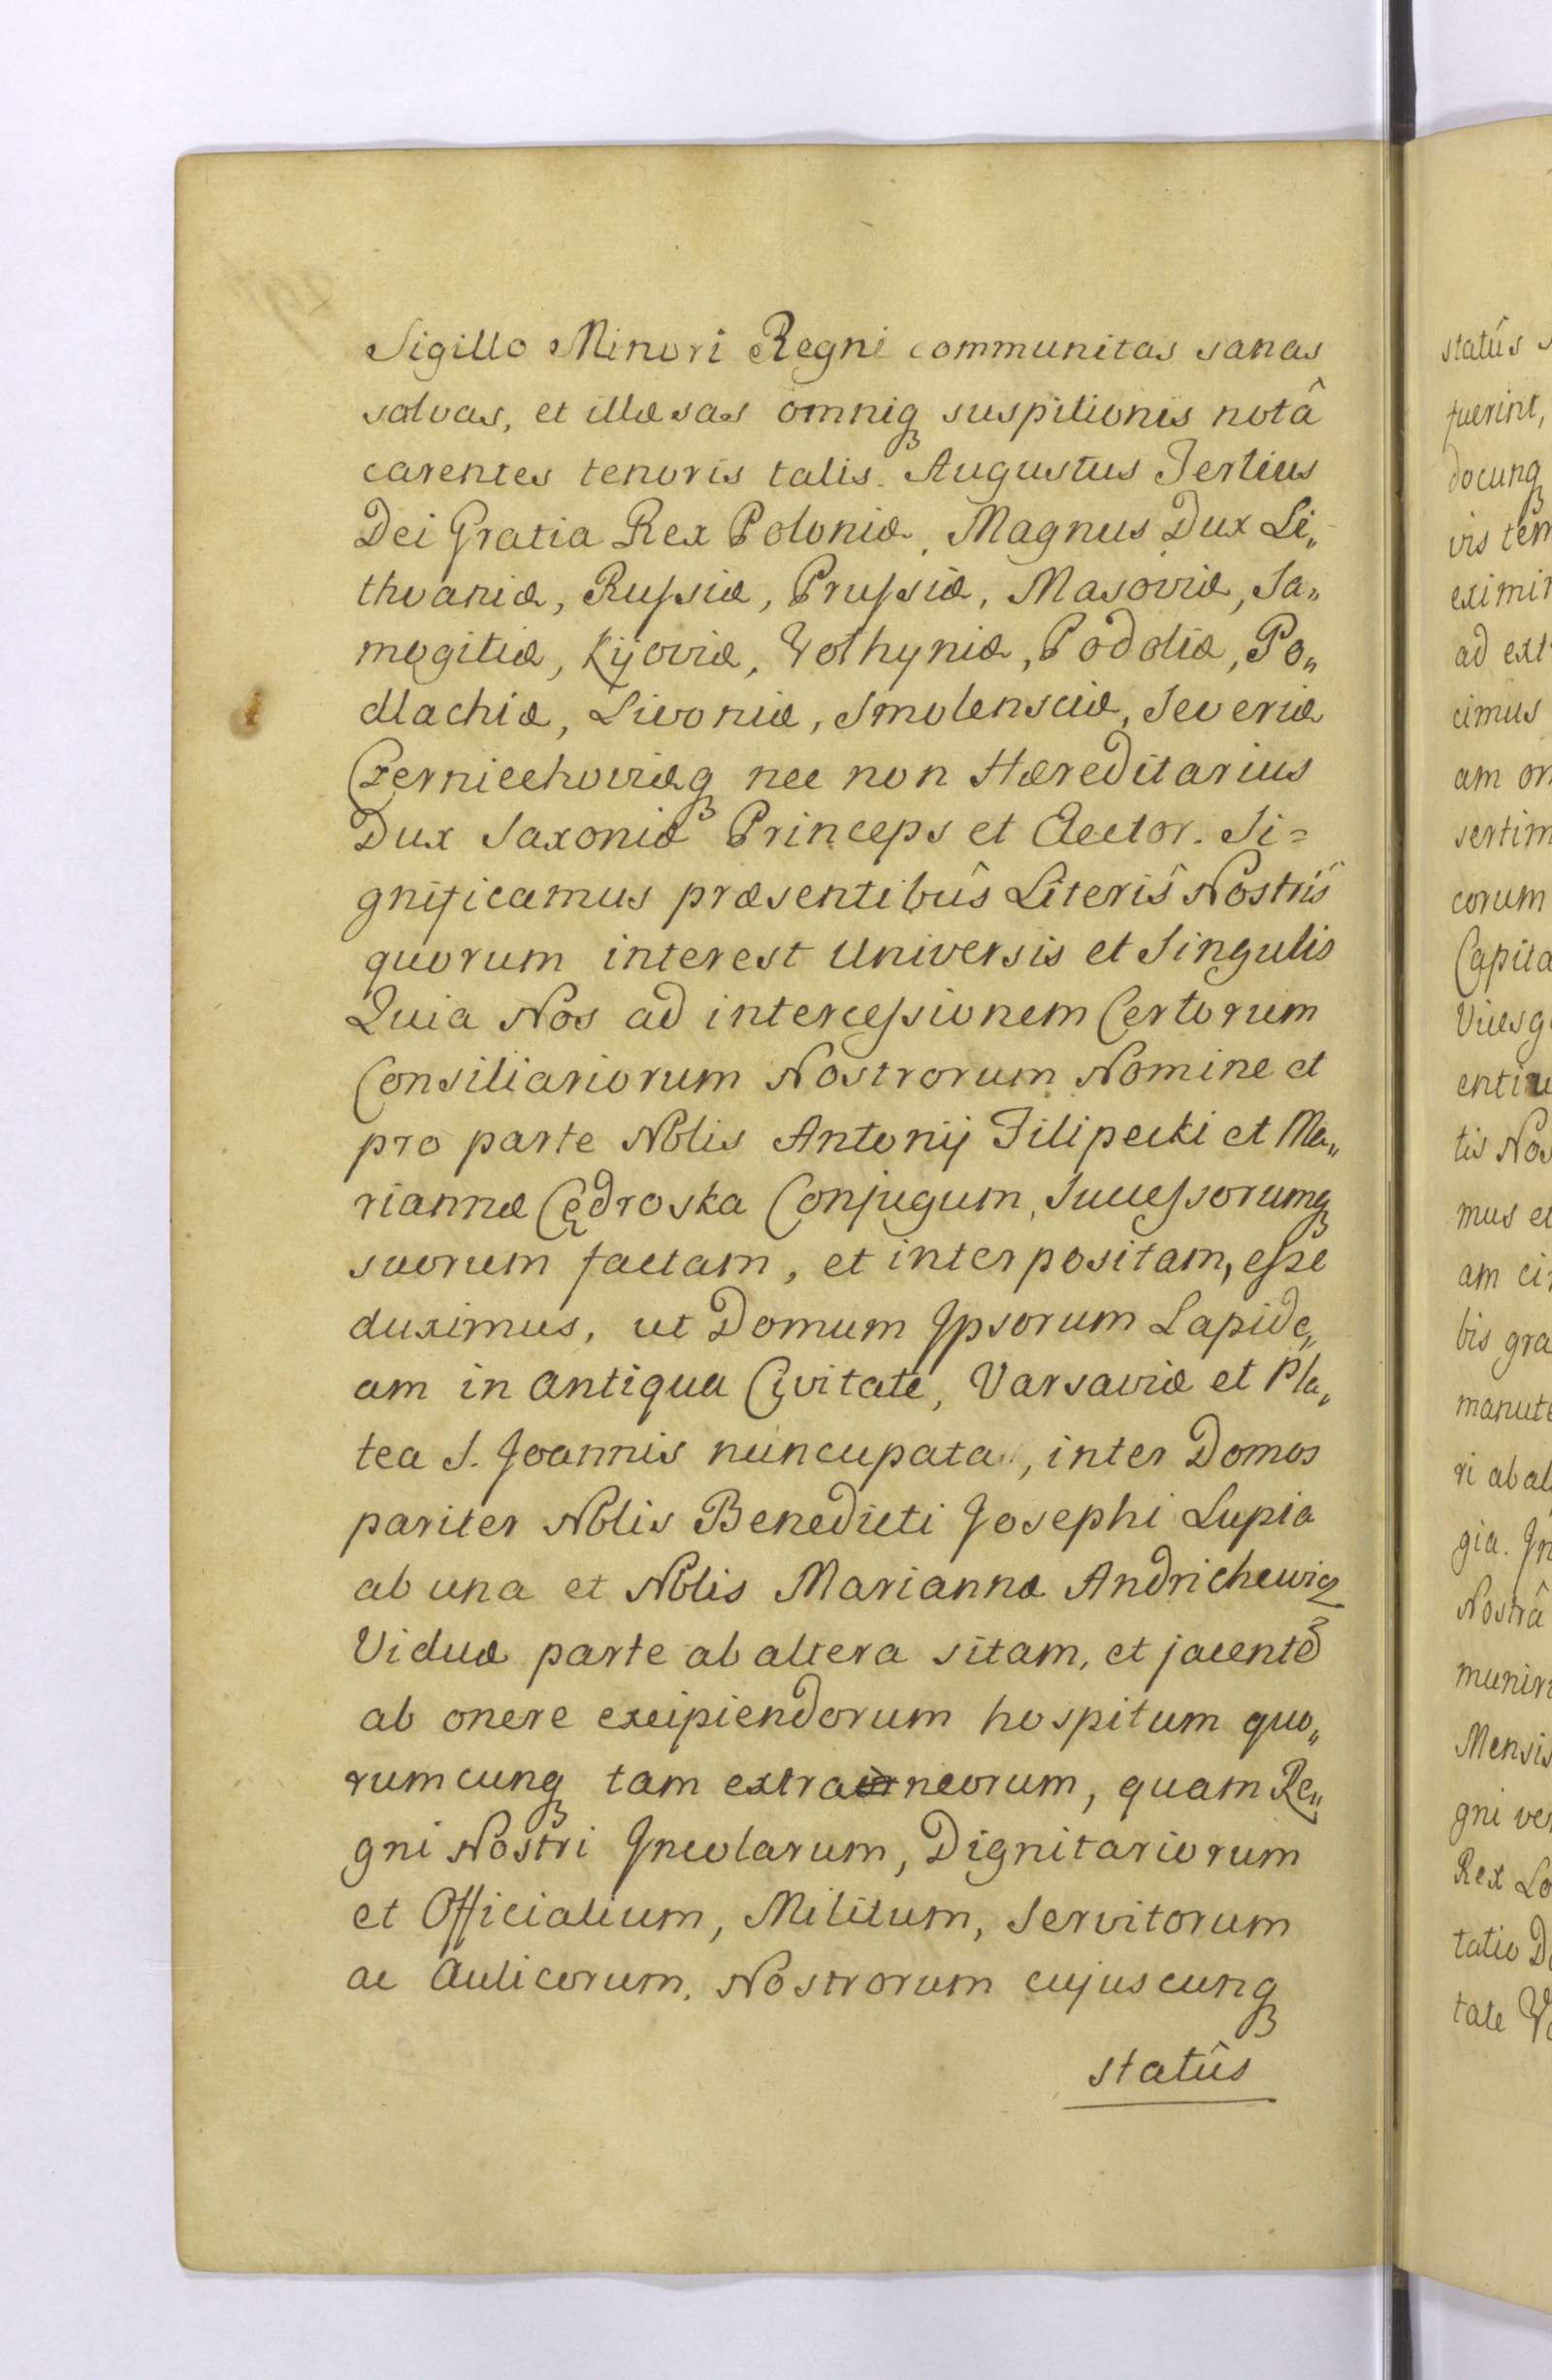 Sigillo Minori Regni communitas sanas
salvas, et illæsas omniq suspitionis notâ
carentes tenoris talis. Augustus Tertius
Dei Gratia Rex Poloniæ, Magnus Dux Li„
thvaniæ, Russiæ, Prussiæ, Masoviæ, Sa„
mogitiæ, Kijoviæ, Volhyniæ, Podoliæ, Po„
dlachiæ, Livoniæ, Smolensciæ, Severiæ
Czerniechoviæq nec non Hæreditarius
Dux Saxoniæ Princeps et Elector. Si=
gnificamus præsentibûs Literîs Nostrîs
quorum interest Universis et Singulis
Quia Nos ad intercessionem Certorum
Consiliariorum Nostrorum Nomine et
pro parte Nblis Antonij Filipecki et Ma„
riannæ Cędroska Conjugum, Successorumq
suorum factam, et interpositam, esse
duximus, ut Domum Ipsorum Lapide„
am in antiqua Civitate, Varsaviæ et Pla„
tea S. Joannis nuncupata, inter Domos
pariter Nblis Benedicti Josephi Lupia
ab una et Nblis Mariannæ Andrichewicz
Viduæ parte ab altera sitam, et jacentẽ
ab onere excipiendorum hospitum quo„
rumcunq tam extraneorum, quam Re„
gni Nostri Incolarum, Dignitariorum
et Officialium, Militum, Servitorum
ac Aulicorum, Nostrorum cujuscunq
statûs
statûs
fuerint,
docunq
vis tem
eximi
ad ext
cimus
am on
sertim
corum
Capita
Vicesg
tis Nos
mus et
am ci
bis gra
manute
ri ab al
gia. In
Nostrâ
muniri
Mensis
gni ve
Rex Lo
tatio D
tate V